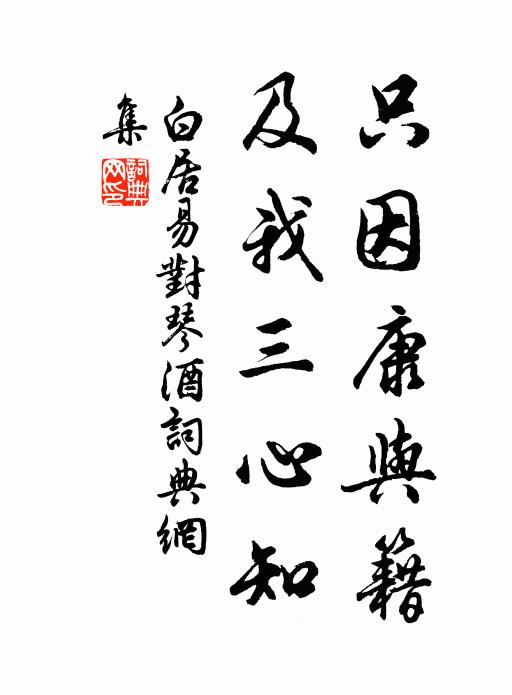 只因康與籍
及我三心知
白居易對琴酒詞典網
集
詞典
网印